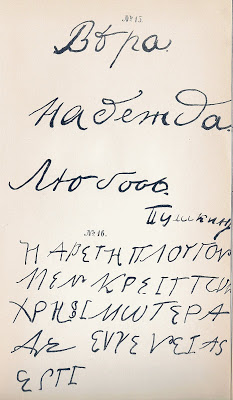 № 15.
Вѣра.
надежда.
Любовь.
Пушкинъ
№ 16.
Η ΑΡΕΤΗ ΠΛΟΥΤΟΥ
ΜΕΝ ΚΡΕΙΤΤΩΝ
ΧΡΗΣΙΜΩΤΕΡΑ
ΔΕ ΕΥΓΕΝΕΙΑΣ
ΕΣΤΙ